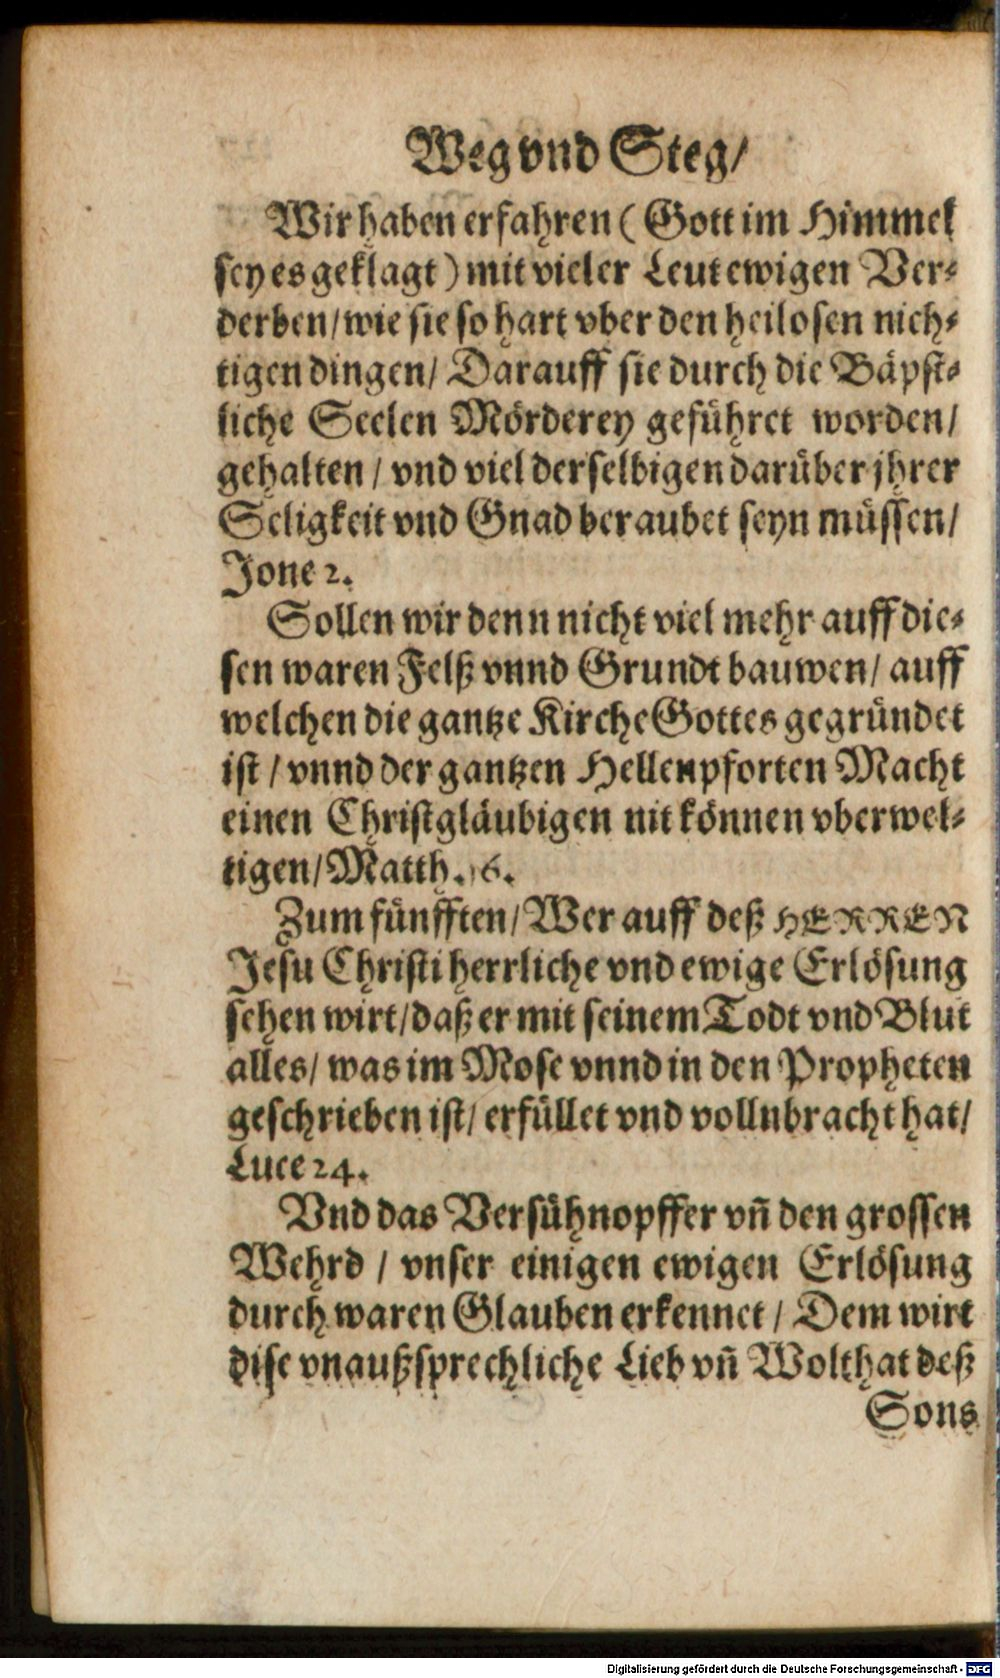 Weg vnd Steg/
Wir haben erfahren (Gott im Himmel
sey es geklagt) mit vieler Leut ewigen Ver-
derben/ wie sie so hart vber den heilosen nich-
tigen dingen/ Darauff sie durch die Bäpst-
liche Seelen Mörderey geführet worden/
gehalten/ vnd viel derselbigen darüber jhrer
Seligkeit vnd Gnad beraubet seyn müssen/
Jone 2.
Sollen wir denn nicht viel mehr auff die-
sen waren Felß vnnd Grundt bauwen/ auff
welchen die gantze Kirche Gottes gegründet
ist/ vnnd der gantzen Hellenpforten Macht
einen Christgläubigen nit können vberwel-
tigen/ Matth. 16.
Zum fünfften/ Wer auff deß HERREN
Jesu Christi herrliche vnd ewige Erlösung
sehen wirt/ daß er mit seinem Todt vnd Blut
alles/ was im Mose vnnd in den Propheten
geschrieben ist/ erfüllet vnd vollnbracht hat/
Luce 24.
Vnd das Versühnopffer vñ den grossen
Wehrd/ vnser einigen ewigen Erlösung
durch waren Glauben erkennet/ Dem wirt
dise vnaußsprechliche Lieb vñ Wolthat deß
Sons
Digitalisierung gefördert durch die Deutsche Forschungsgemeinschaft - DFG